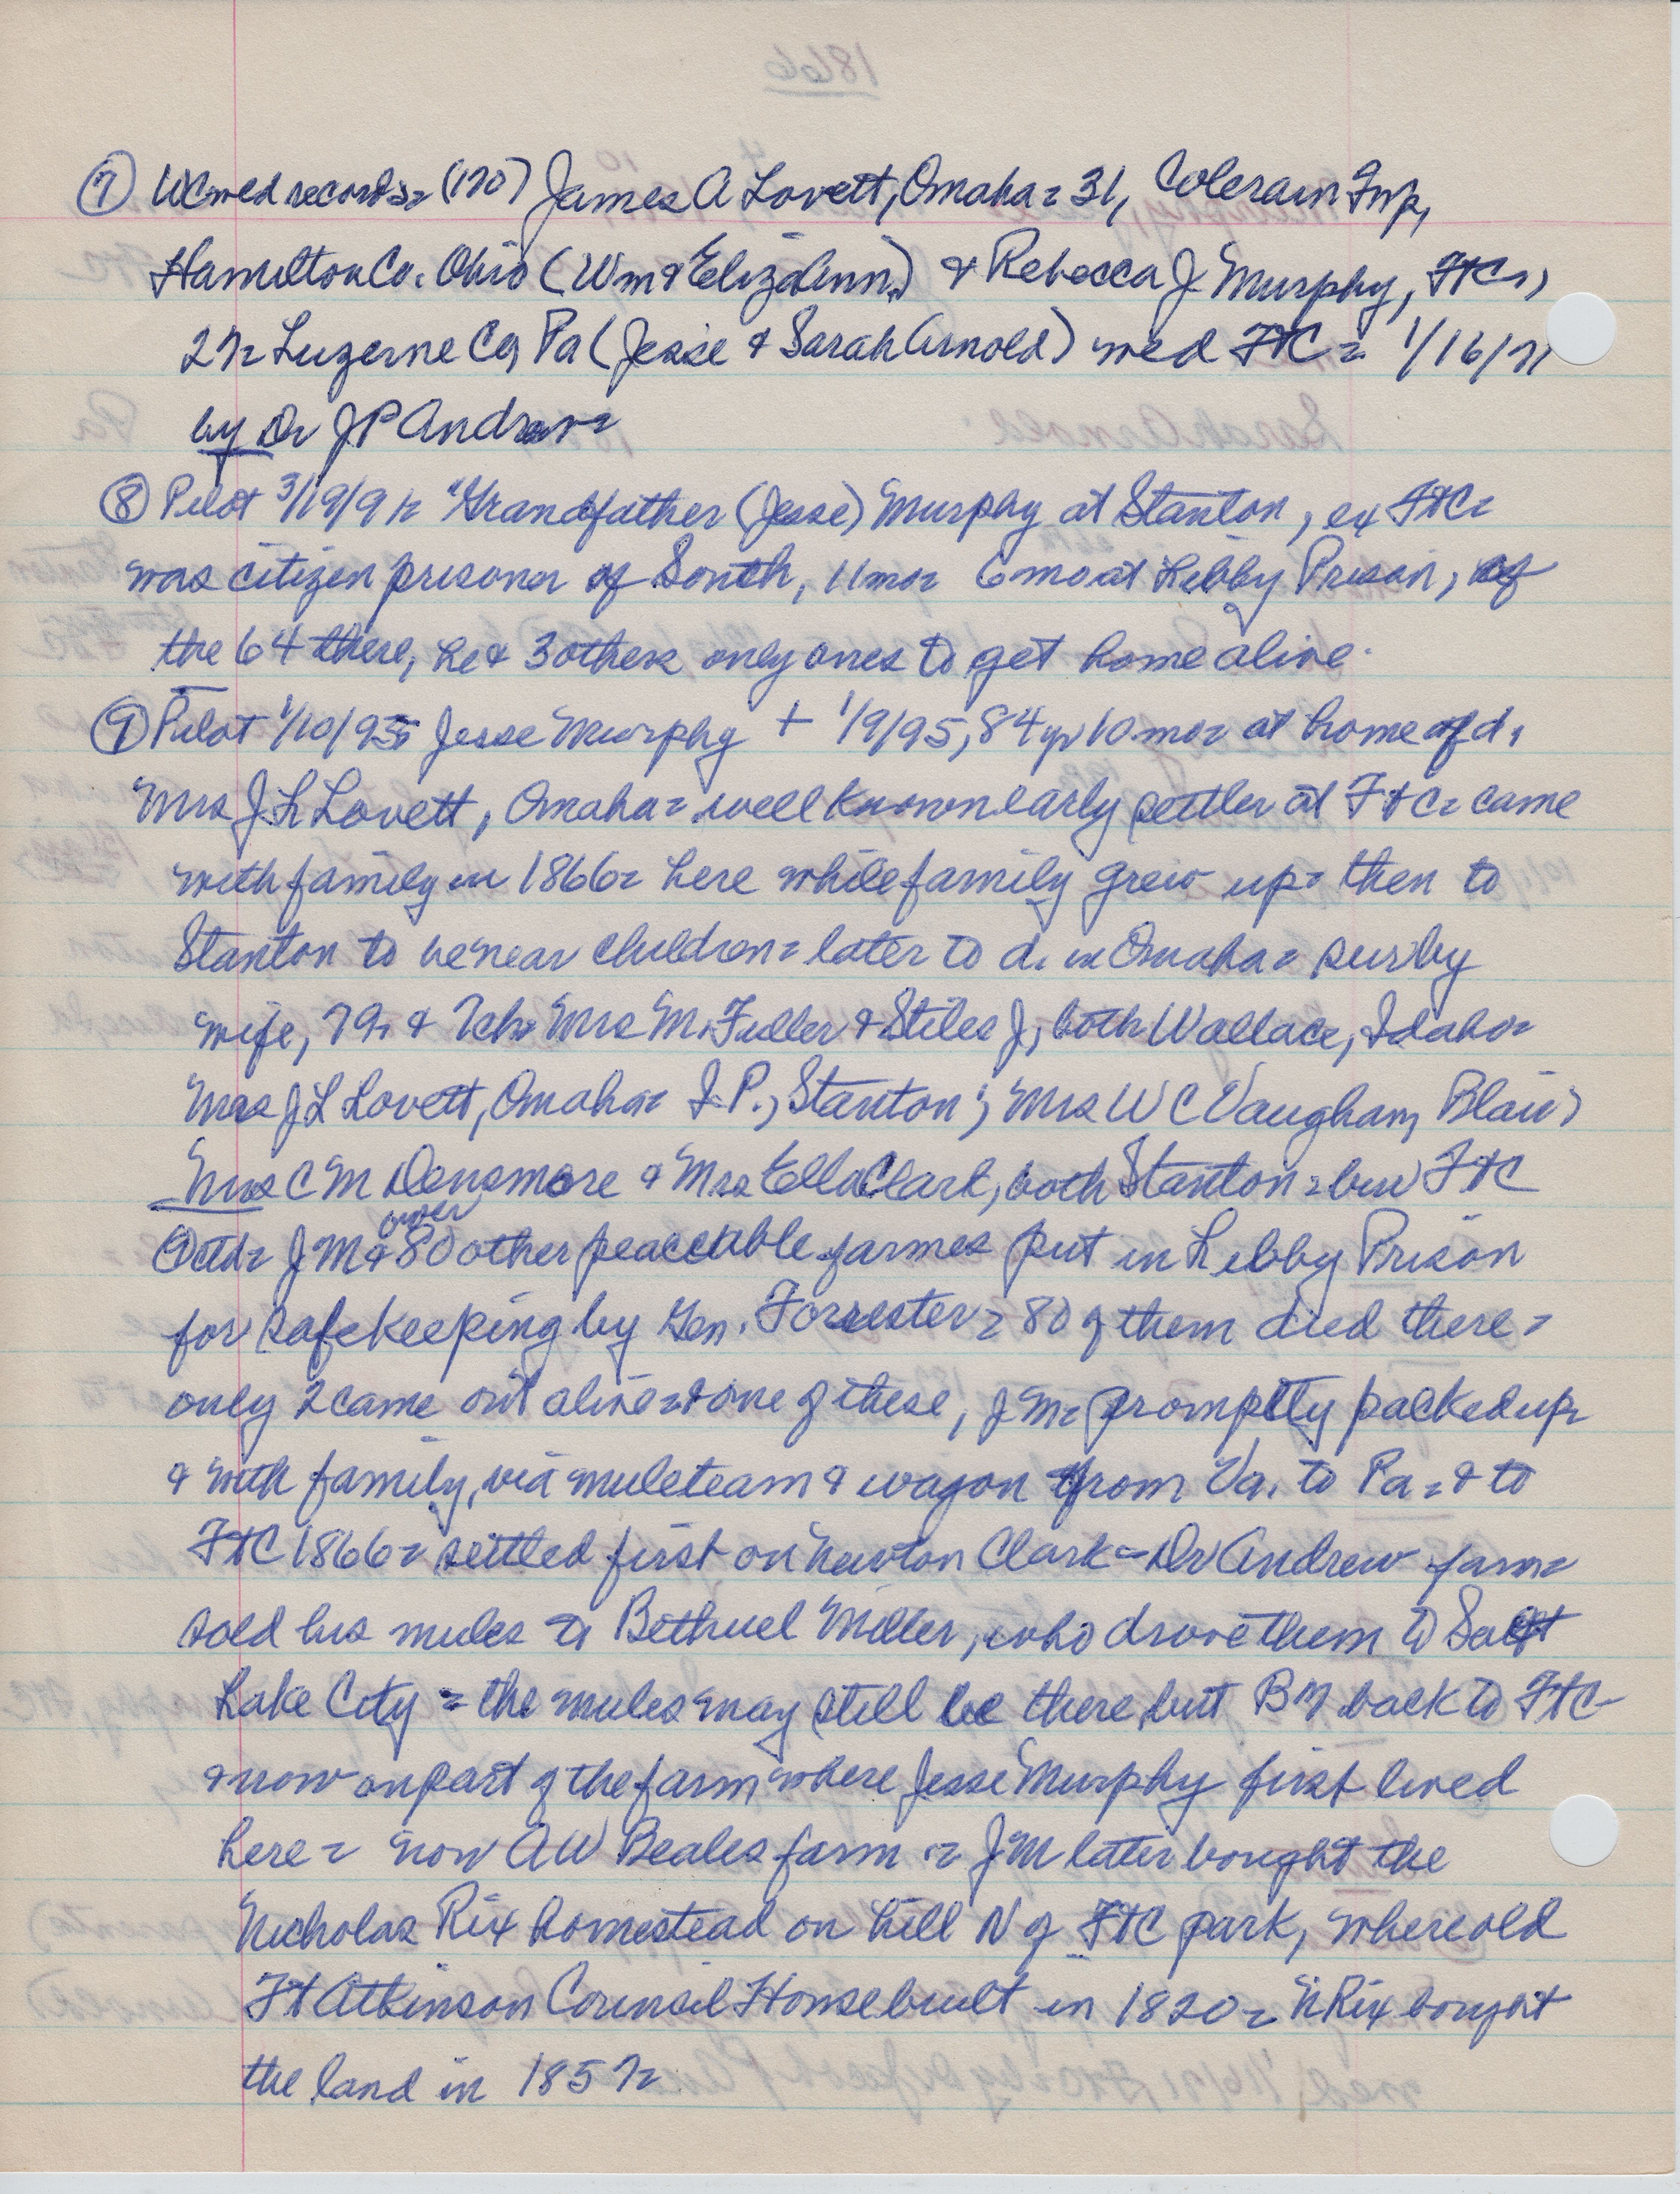 ⑦ WC med records= (170) James A Lovett, Omaha= 31, Colerain Twp,
Hamilton Co. Ohio (Wm & Eliz Ann) & Rebecca J Murphy, FtC=,
27= Luzerne Co, Pa (Jesse & Sarah Arnold) med FtC= 1/16/71
by Dr J P Andrew=
⑧ Pilot 3/19/91= "Grandfather (Jesse) Murphy at Stanton, ex FtC=
was citizen prisoner of South, 11 mo= 6 mo at Libby Prison, of
the 64 there, he & 3 others only ones to get home alive.
⑨ Pilot 1/10/95 Jesse Murphy + 1/9/95, 84 yr 10 mo= at home of d,
Mrs J L Lovett, Omaha= well known early settler at FtC= came
with family in 1866= here while family grew up= then to
Stanton to be near children= later to d. in Omaha= sur by
wife, 79, & 7 ch= Mrs M. Fuller & Stiles J, both Wallace, Idaho=
Mrs J L Lovett, Omaha= I. P., Stanton; Mrs W C Vaugham, Blair)
Mrs C M Densmore & Mrs Ella Clark, both Stanton= bur FtC
J M & over 80 other peaceable farmes put in Libby Prison
for safekeeping by Gen. Forrester= 80 of them died there=
only 2 came out alive= & one of these, J M= promptly packed up
& with family, via muleteam & wagon from Va. to Pa= & to
FtC 1866= settled first on Newton Clark= Dr Andrew farm=
sold his mules to Bethuel Miller, who drove them to Salt
Lake City = the mules may still be there but BM back to FtC-
& now on part of the farm where Jesse Murphy first lived
here= now A W Beales farm = J M later bought the
Nicholas Rix homestead on hill N of FtC park, where old
Ft Atkinson Counsil House built in 1820= N Rix bought
the land in 1857=